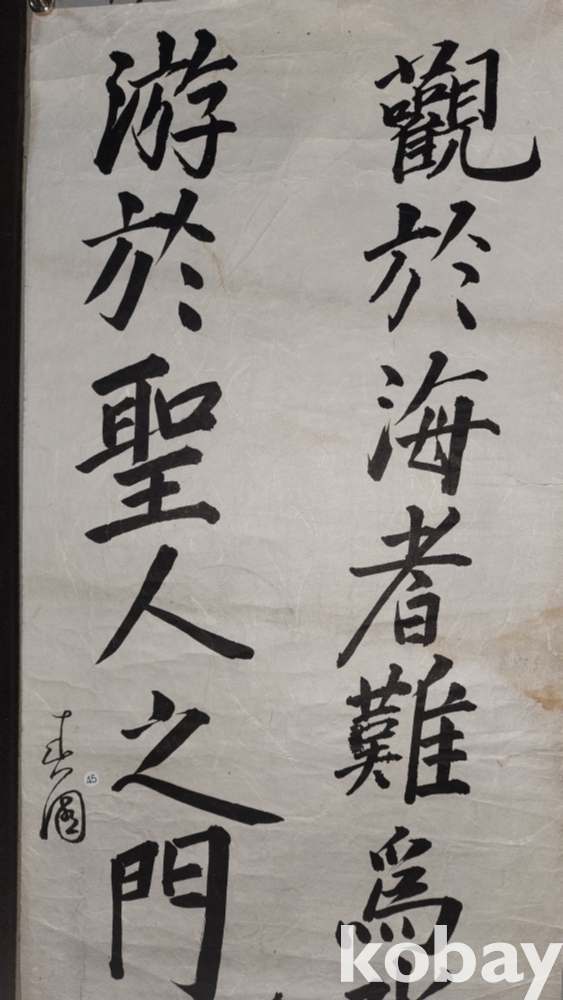 觀於海者難爲
游於聖人之門
春園
45
kobay